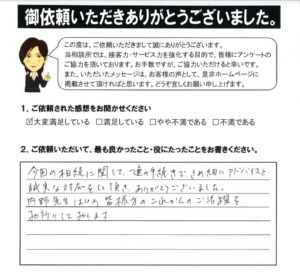 御依頼いただきありがとうございました。
この度は、ご依頼いただきまして誠にありがとうございます。
当相談所では、接客力・サービス力を強化する目的で、皆様にアンケートの
ご協力を頂いております。お手数ですが、ご協力いただけると幸いです。
また、いただいたメッセージは、お客様の声として、是非ホームページに
掲載させて頂ければと思います。どうぞ宜しくお願い申し上げます。
1. ご依頼された感想をお聞かせください
☑大変満足している □満足している □やや不満である □不満である
2. ご依頼いただいて、最も良かったこと・役にたったことをお書きください。
今回の相続に関して、一連の手続きできめ細かいアドバイスと
誠実な対応をして頂き、ありがとうございました。
内野先生はじめ皆様方のこれからのご活躍を
お祈りして おります